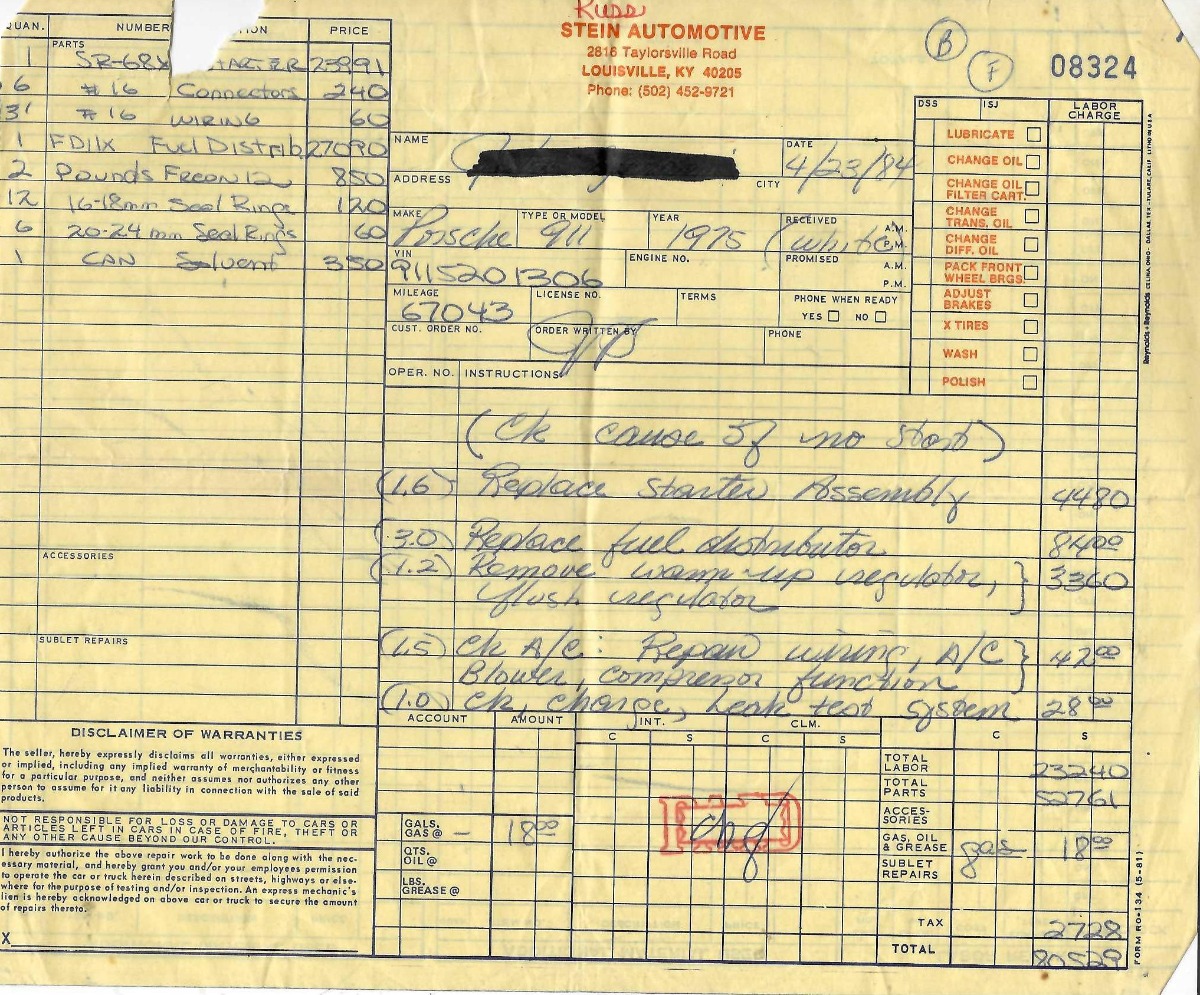 Russ
STEIN AUTOMOTIVE
2816 Taylorsville Road
LOUISVILLE, KY 40205
Phone: (502) 452-9721
B
F
08324
QUAN. NUMBER PRICE
PARTS
1 SR-68X 23991
6 #16 Connectors 240
3' #16 WIRING 60
1 FD11X Fuel Distrib 27090
2 Pounds Freon 12 850
12 16-18mm Seal Rings 120
6 20-24mm Seal Rings 60
1 CAN Solvent 350
ACCESSORIES
SUBLET REPAIRS
NAME
DATE 4/23/84
ADDRESS CITY
MAKE Porsche TYPE OR MODEL 911 YEAR 1975 RECEIVED (white) A.M. P.M.
VIN 9115201306 ENGINE NO. PROMISED A.M. P.M.
MILEAGE 67043 LICENSE NO. TERMS PHONE WHEN READY YES NO
CUST. ORDER NO. ORDER WRITTEN BY PHONE
DSS ISJ LABOR CHARGE
LUBRICATE
CHANGE OIL
CHANGE OIL FILTER CART.
CHANGE TRANS. OIL
CHANGE DIFF. OIL
PACK FRONT WHEEL BRGS.
ADJUST BRAKES
X TIRES
WASH
POLISH
OPER. NO. INSTRUCTIONS:
(Ck cause of no start)
(1.6) Replace Starter Assembly 4480
(3.0) Replace fuel distributor 8400
(1.2) Remove warm-up regulator, } 3360
flush regulator
(1.5) Ck A/C: Repair wiring, A/C } 4200
Blower, compressor function
(1.0) Ck, charge, Leak test system 2800
DISCLAIMER OF WARRANTIES
The seller, hereby expressly disclaims all warranties, either expressed
or implied, including any implied warranty of merchantability or fitness
for a particular purpose, and neither assumes nor authorizes any other
person to assume for it any liability in connection with the sale of said
products.
NOT RESPONSIBLE FOR LOSS OR DAMAGE TO CARS OR
ARTICLES LEFT IN CARS IN CASE OF FIRE, THEFT OR
ANY OTHER CAUSE BEYOND OUR CONTROL.
I hereby authorize the above repair work to be done along with the nec-
essary material, and hereby grant you and/or your employees permission
to operate the car or truck herein described on streets, highways or else-
where for the purpose of testing and/or inspection. An express mechanic's
lien is hereby acknowledged on above car or truck to secure the amount
of repairs thereto.
X
ACCOUNT AMOUNT INT. CLM.
C S C S C S
GALS. GAS @ - 1800
QTS. OIL @
LBS. GREASE @
chg
TOTAL LABOR 23240
TOTAL PARTS 52761
ACCES- SORIES
GAS, OIL & GREASE gas 1800
SUBLET REPAIRS
TAX 2728
TOTAL 80529
FORM RO-134 (5-81)